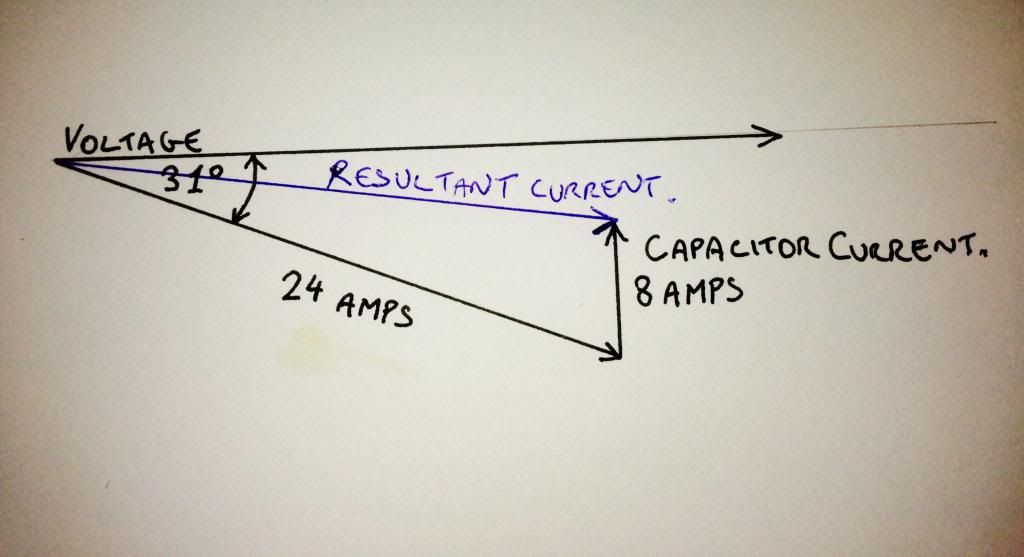 VOLTAGE
31°
RESULTANT CURRENT.
CAPACITOR CURRENT.
8 AMPS
24 AMPS